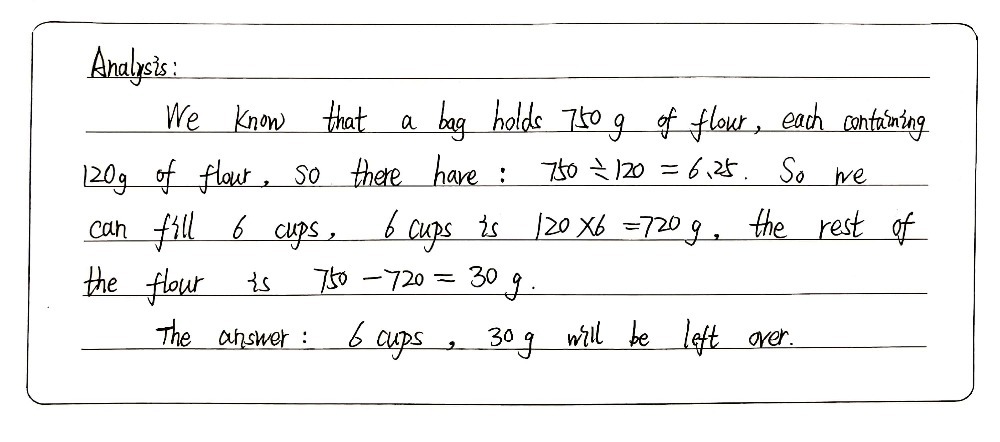 Analysis:
We know that a bag holds 750 g of flour, each containing
120g of flour, so there have: 750÷120=6.25. So we
can fill 6 cups, 6 cups is 120×6=720g, the rest of
the flour is 750-720=30g.
The answer: 6 cups, 30g will be left over.